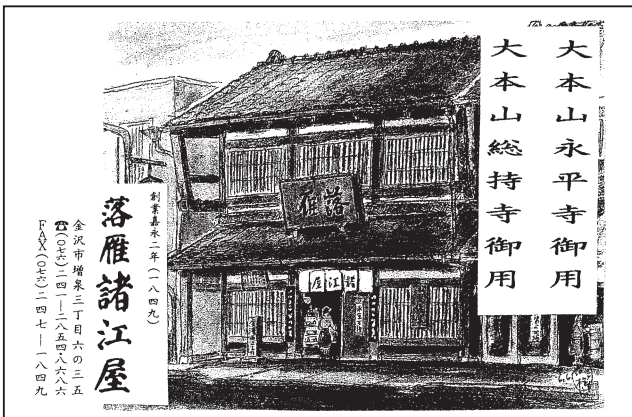 大本山永平寺御用
大本山総持寺御用
落雁
諸江屋
創業嘉永二年(一八四九)
落雁諸江屋
金沢市増泉三丁目六の三五
☎(〇七六)二四一―二八五四・八六八六
FAX(〇七六)二四七―一八四九